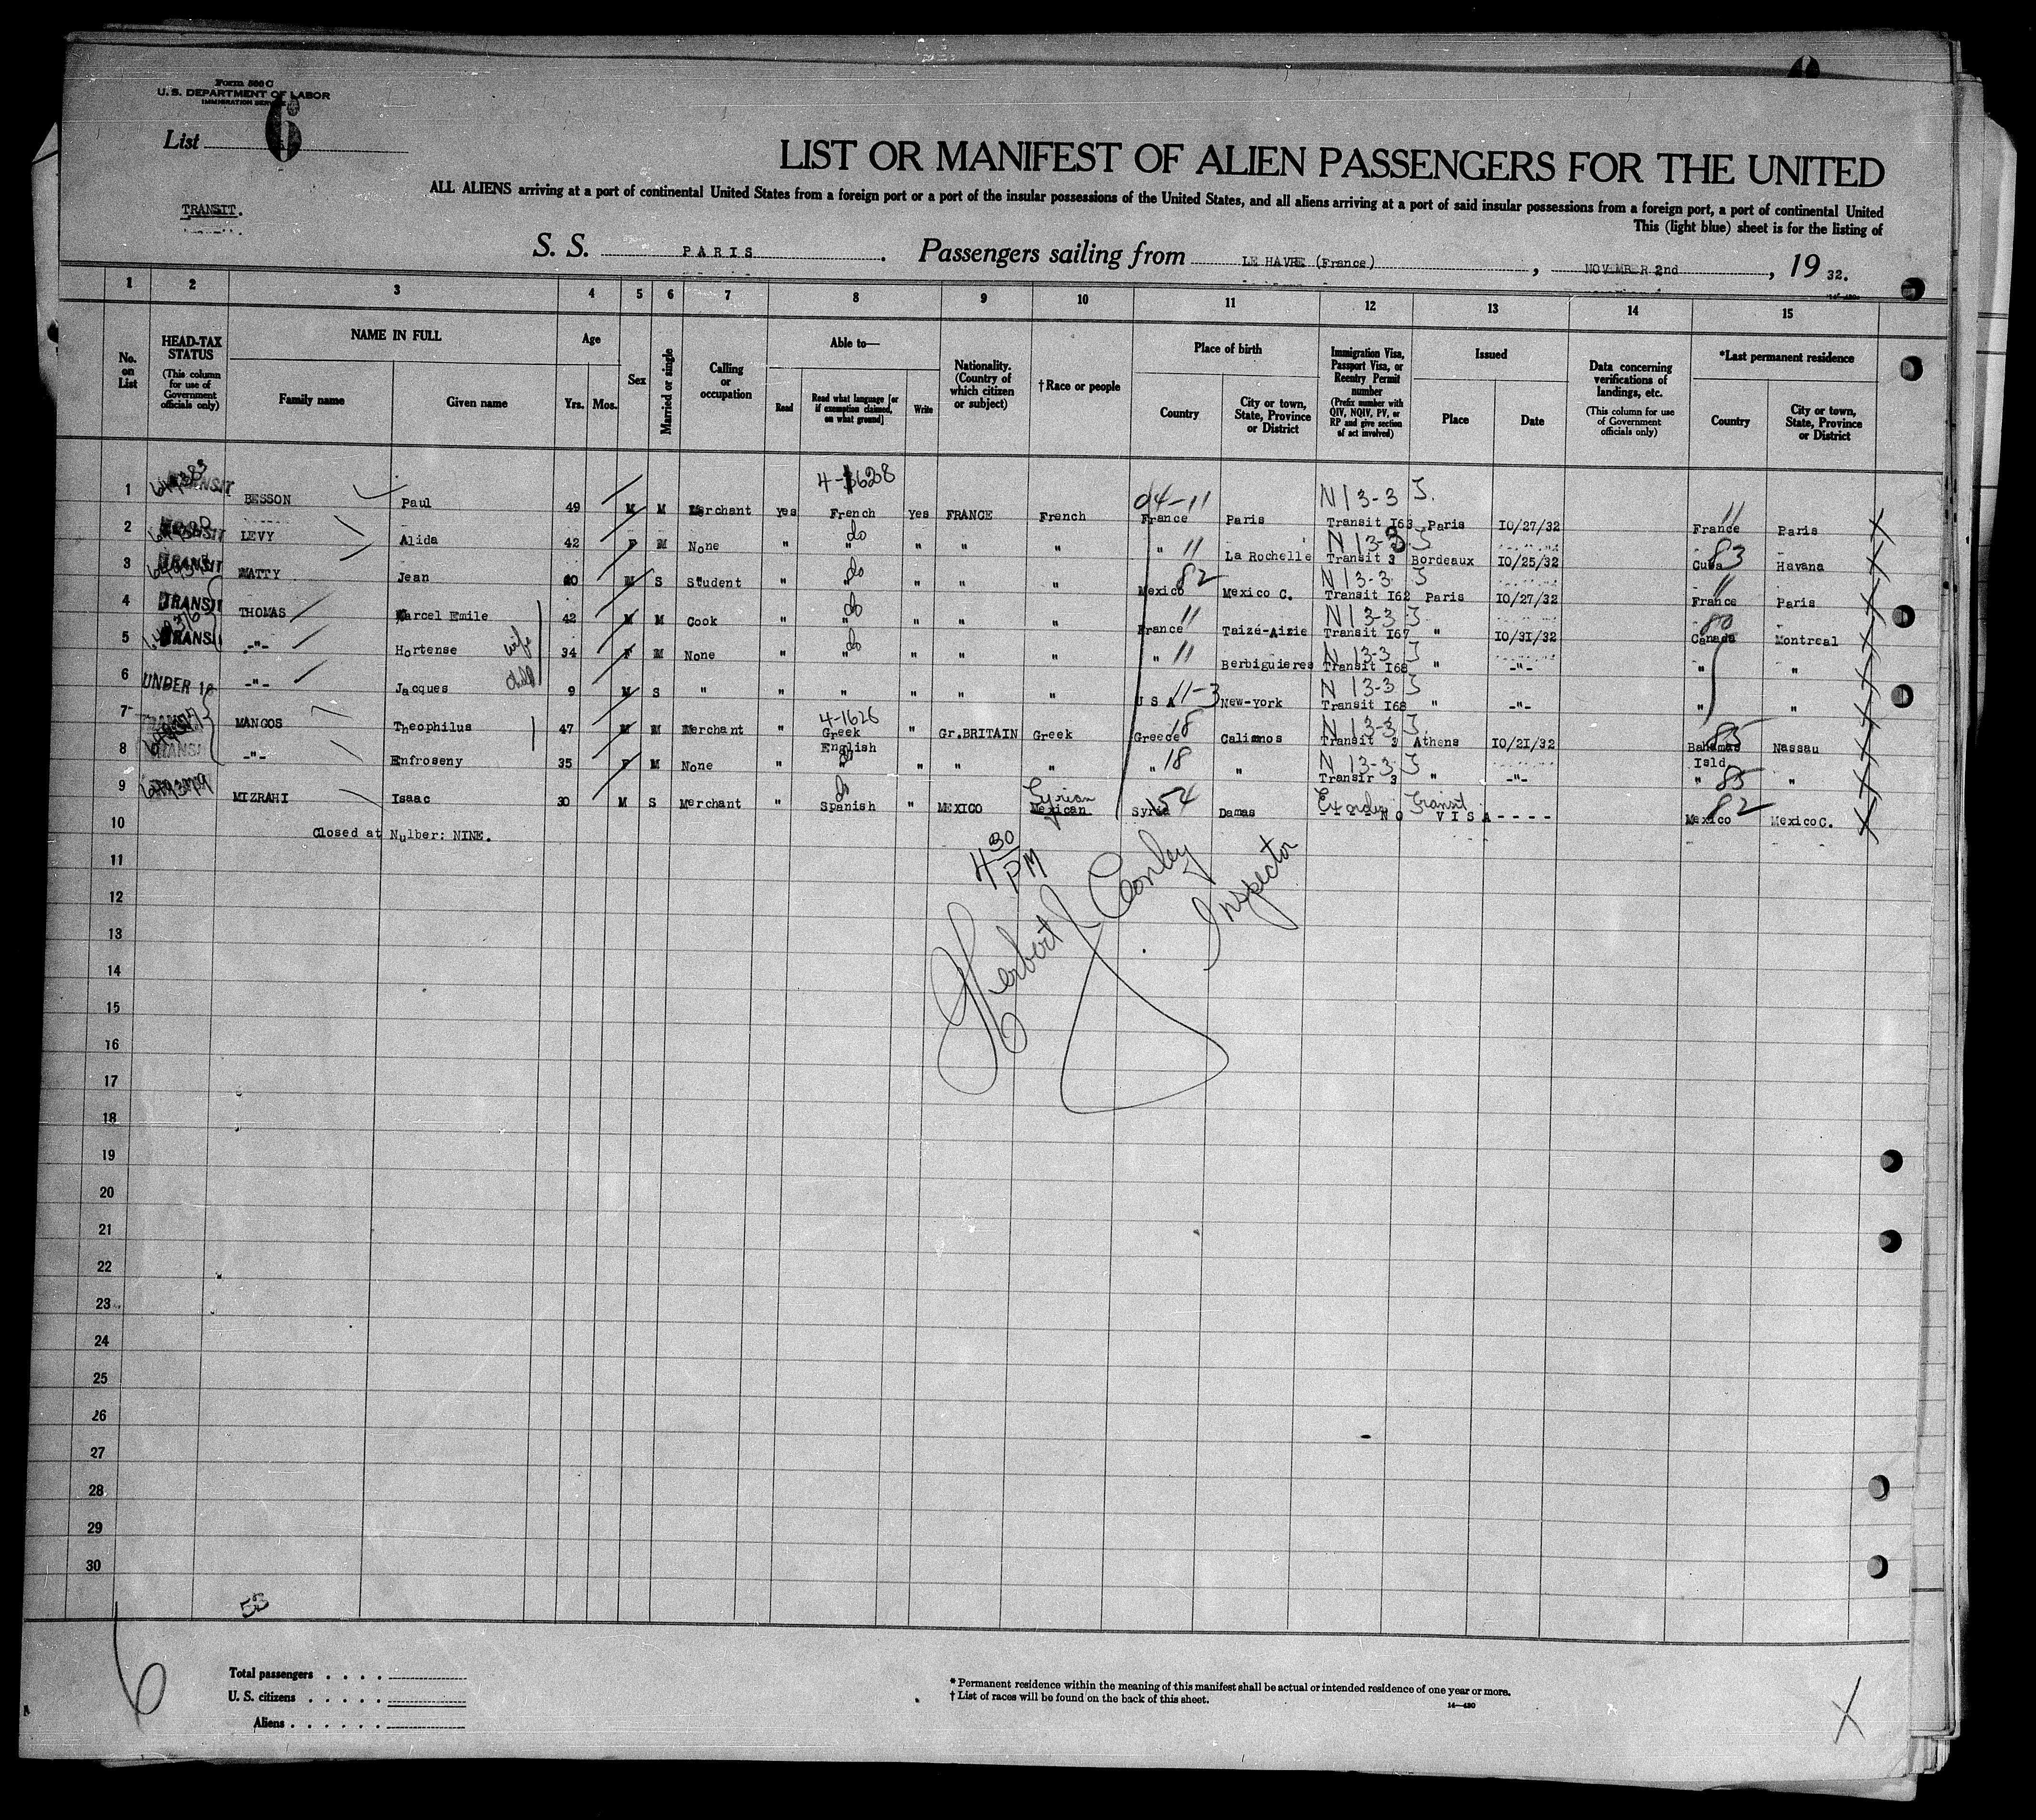 Form 500 C
U. S. DEPARTMENT OF LABOR
IMMIGRATION SERVICE
List 6
LIST OR MANIFEST OF ALIEN PASSENGERS FOR THE UNITED
ALL ALIENS arriving at a port of continental United States from a foreign port or a port of the insular possessions of the United States, and all aliens arriving at a port of said insular possessions from a foreign port, a port of continental United
TRANSIT.
This (light blue) sheet is for the listing of
S. S. PARIS. Passengers sailing from LE HAVRE (France), NOVEMBER 2nd, 19 32.
1 2 3 4 5 6 7 8 9 10 11 12 13 14 15
No. on List
HEAD-TAX STATUS (This column for use of Government officials only)
NAME IN FULL
Family name
Given name
Age
Yrs. Mos.
Sex
Married or single
Calling or occupation
Able to—
Read
Read what language [or if exemption claimed, on what ground]
Write
Nationality. (Country of which citizen or subject)
† Race or people
Place of birth
Country
City or town, State, Province or District
Immigration Visa, Passport Visa, or Reentry Permit number (Prefix number with QIV, NQIV, PV, or RP and give section of act involved)
Issued
Place
Date
Data concerning verifications of landings, etc. (This column for use of Government officials only)
*Last permanent residence
Country
City or town, State, Province or District
4-3628 04-11 N 13-3 J. 11
1 TRANSIT BESSON Paul 49 M M Merchant yes French Yes FRANCE French France Paris Transit I63 Paris 10/27/32 France Paris X
do 11 N 13-3 J 83
2 TRANSIT LEVY Alida 42 F M None " " " " " " La Rochelle Transit 3 Bordeaux 10/25/32 Cuba Havana X
do 82 N 13-3 J 11
3 TRANSIT MATTY Jean 20 M S Student " " " " " Mexico Mexico C. Transit I62 Paris 10/27/32 France Paris X
do 11 N 13-3 J 80
4 TRANSIT THOMAS Marcel Emile 42 M M Cook " " " " " France Taizé-Aizie Transit I67 " 10/31/32 Canada Montreal X
do 11 N 13-3 J
5 TRANSIT -"- Hortense wife 34 F M None " " " " " " Berbiguieres Transit I68 " -"- " " X
11-3 N 13-3 J
6 UNDER 16 -"- Jacques child 9 M S " " " " " " U S A New-york Transit I68 " -"- " " X
4-1626 18 N 13-3 J. 85
7 TRANSIT MANGOS Theophilus 47 M M Merchant " Greek English " Gr.BRITAIN Greek Greece Calimnos Transit 3 Athens 10/21/32 Bahamas Isld. Nassau X
do 18 N 13-3 J 85
8 TRANSIT -"- Enfroseny 35 F M None " " " " " " " Transir 3 " -"- " " X
do Syrian 54 Ex order Transit 82
9 MIZRAHI Isaac 30 M S Merchant " Spanish " MEXICO Mexican Syria Damas ----NO VISA---- Mexico Mexico C. X
10 Closed at Nulber: NINE.
11
12
13
14
15
16
17
18
19
20
21
22
23
24
25
26
27
28
29
30
4 30 PM
Herbert J. Conley
Inspector
53
6
Total passengers . . . .
U. S. citizens . . . . .
Aliens . . . . . .
* Permanent residence within the meaning of this manifest shall be actual or intended residence of one year or more.
† List of races will be found on the back of this sheet.
14—430
X